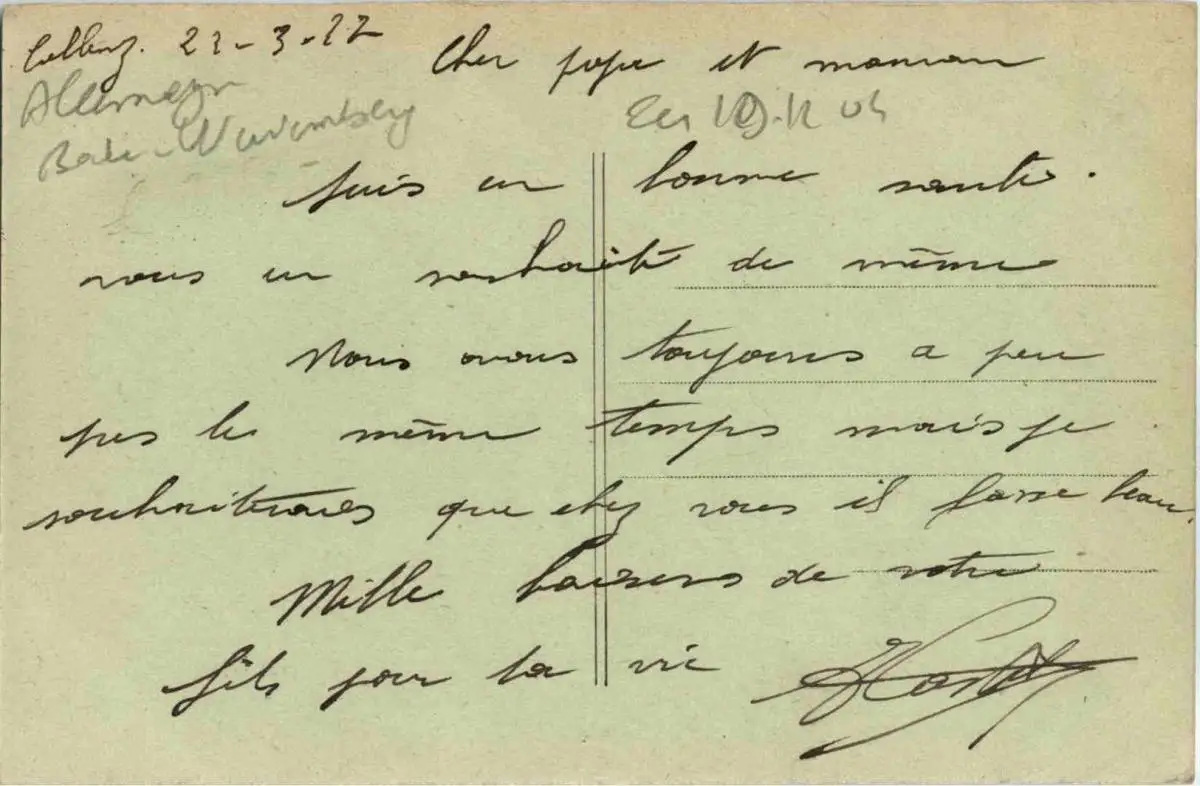 Coblenz. 22-3-22
Cher papa et maman
Allemagne
Bade-Wurtemberg
suis en bonne santé.
vous en souhaite de même
Nous avons toujours a peu
pes le même temps mais je
souhaiterais que chez vous il fasse beau.
Mille baisers de votre
fils pour la vie